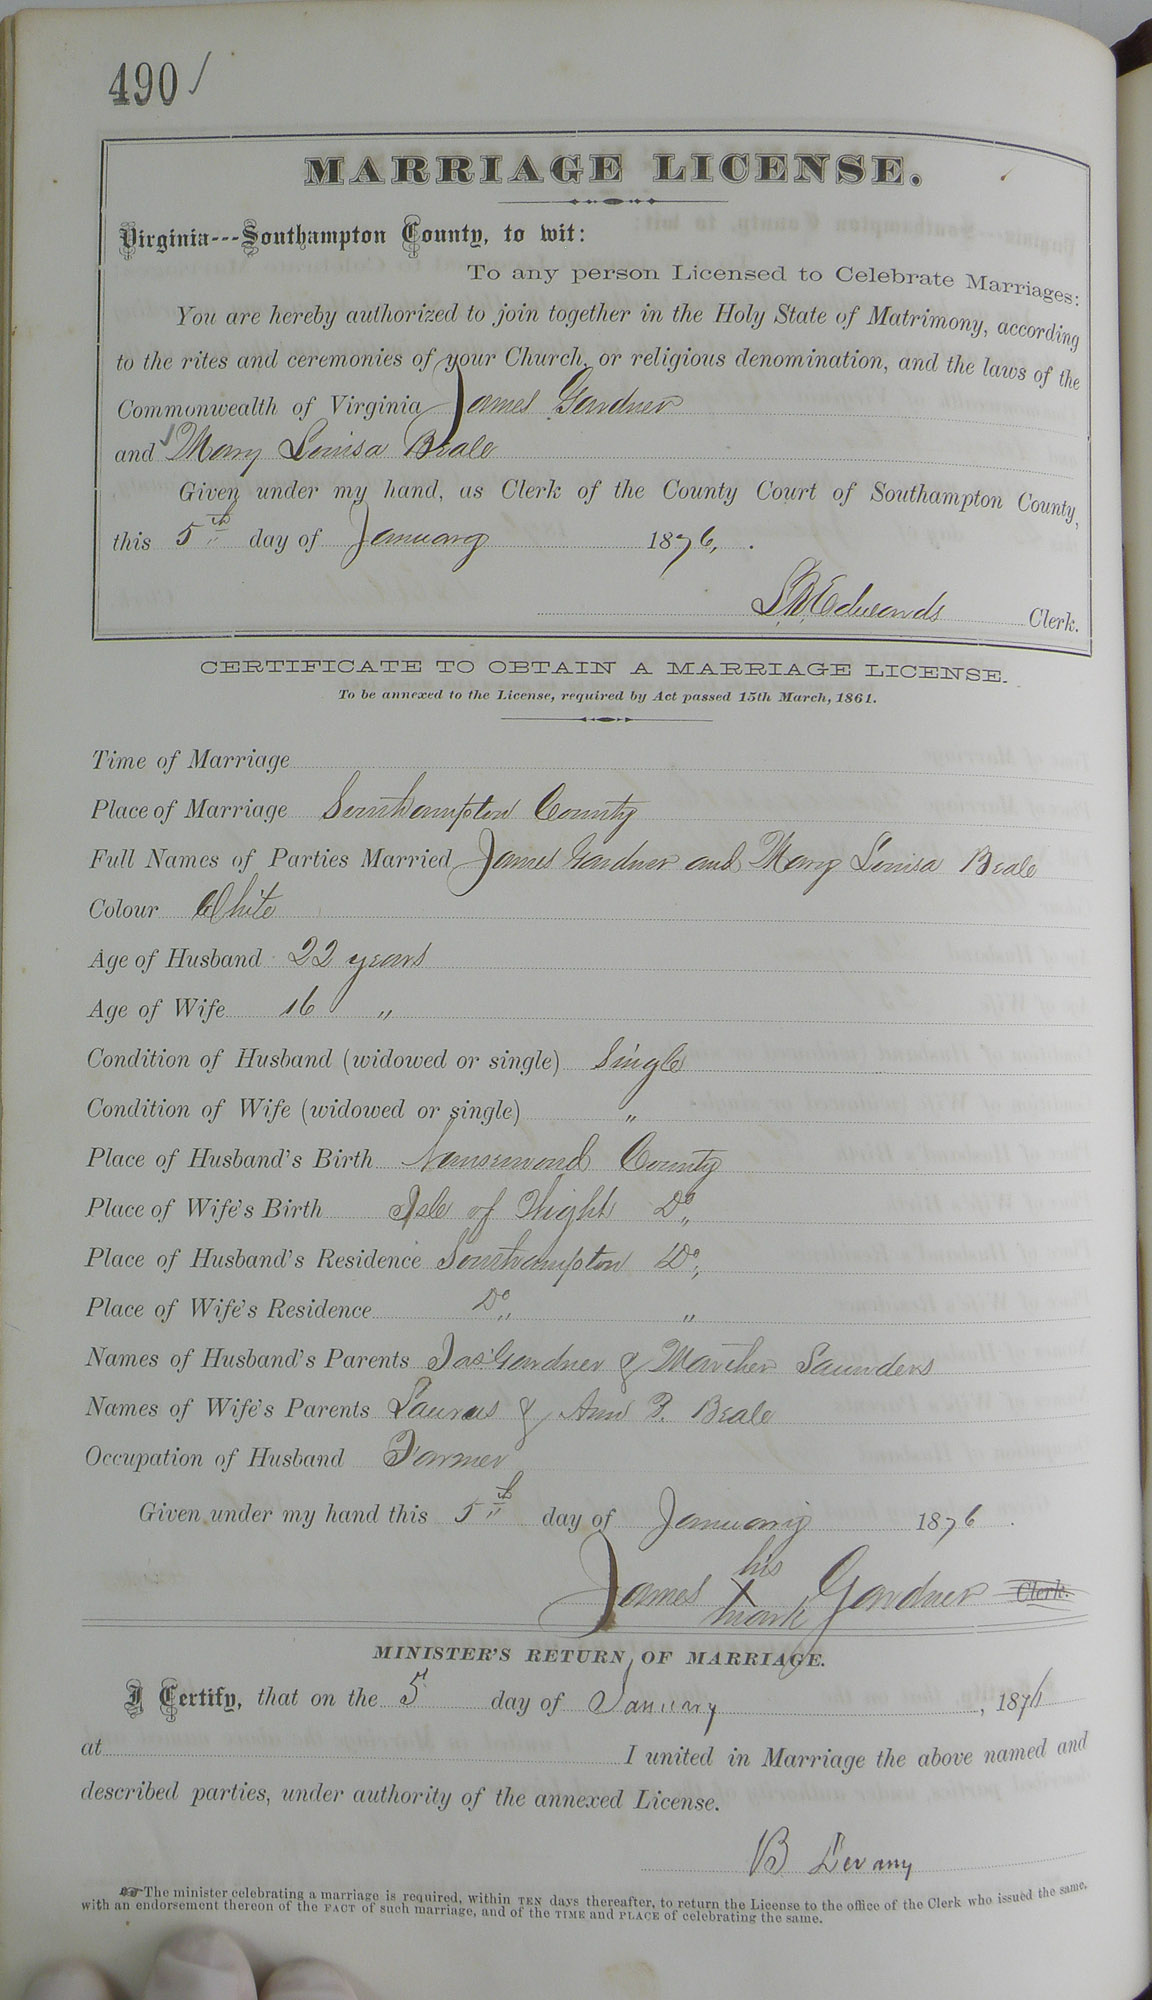 490 /
MARRIAGE LICENSE.
Virginia---Southampton County, to wit:
To any person Licensed to Celebrate Marriages:
You are hereby authorized to join together in the Holy State of Matrimony, according
to the rites and ceremonies of your Church, or religious denomination, and the laws of the
Commonwealth of Virginia James Gardner
and Mary Louisa Beale
Given under my hand, as Clerk of the County Court of Southampton County,
this 5th day of January 1876, .
Edwards Clerk.
CERTIFICATE TO OBTAIN A MARRIAGE LICENSE.
To be annexed to the License, required by Act passed 15th March, 1861.
Time of Marriage
Place of Marriage Southampton County
Full Names of Parties Married James Gardner and Mary Louisa Beale
Colour White
Age of Husband 22 years
Age of Wife 16 "
Condition of Husband (widowed or single) Single
Condition of Wife (widowed or single) "
Place of Husband's Birth Nansemond County
Place of Wife's Birth Isle of Wight Do,,
Place of Husband's Residence Southampton Do,,
Place of Wife's Residence Do,, "
Names of Husband's Parents Jas Gardner & Saunders
Names of Wife's Parents & Ann Beale
Occupation of Husband Farmer
Given under my hand this 5th day of January 1876 .
his
James X Gardner Clerk.
mark
MINISTER'S RETURN OF MARRIAGE.
I Certify, that on the 5 day of January, 1876
at I united in Marriage the above named and
described parties, under authority of the annexed License.
B
☞The minister celebrating a marriage is required, within TEN days thereafter, to return the License to the office of the Clerk who issued the same,
with an endorsement thereon of the FACT of such marriage, and of the TIME and PLACE of celebrating the same.